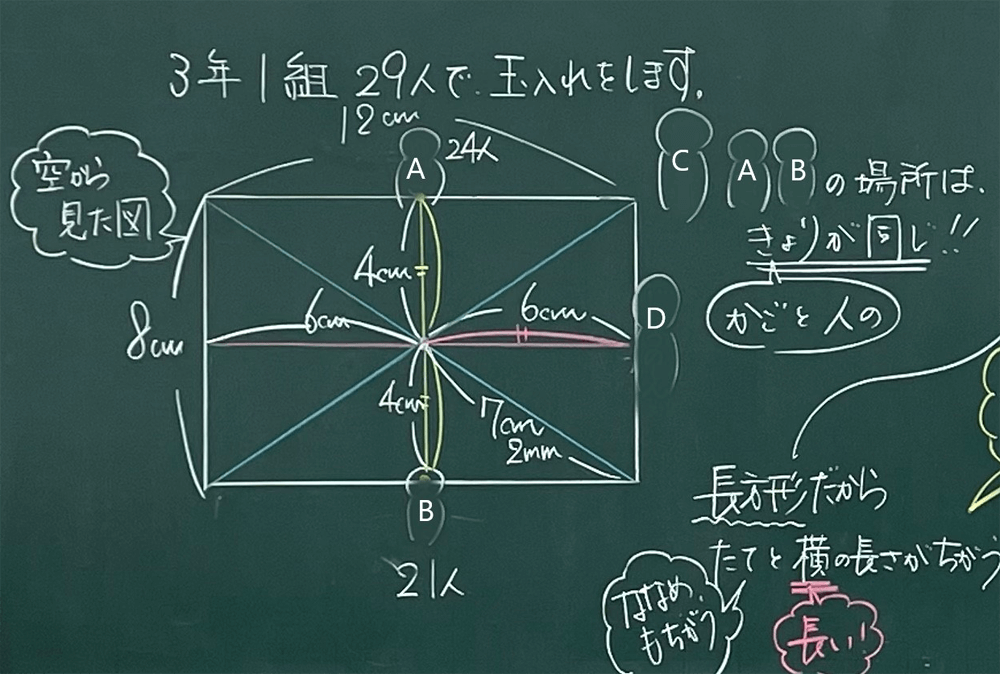 3年1組 29人で玉入れをします。
12cm
空から
見た図
A
24人
C A B の場所は、
きょりが同じ!!
かごと人の
8cm
4cm
6cm
6cm
D
4cm
7cm
2mm
B
21人
長方形だから
たてと横の長さがちがう
ななめ
もちがう
長い!